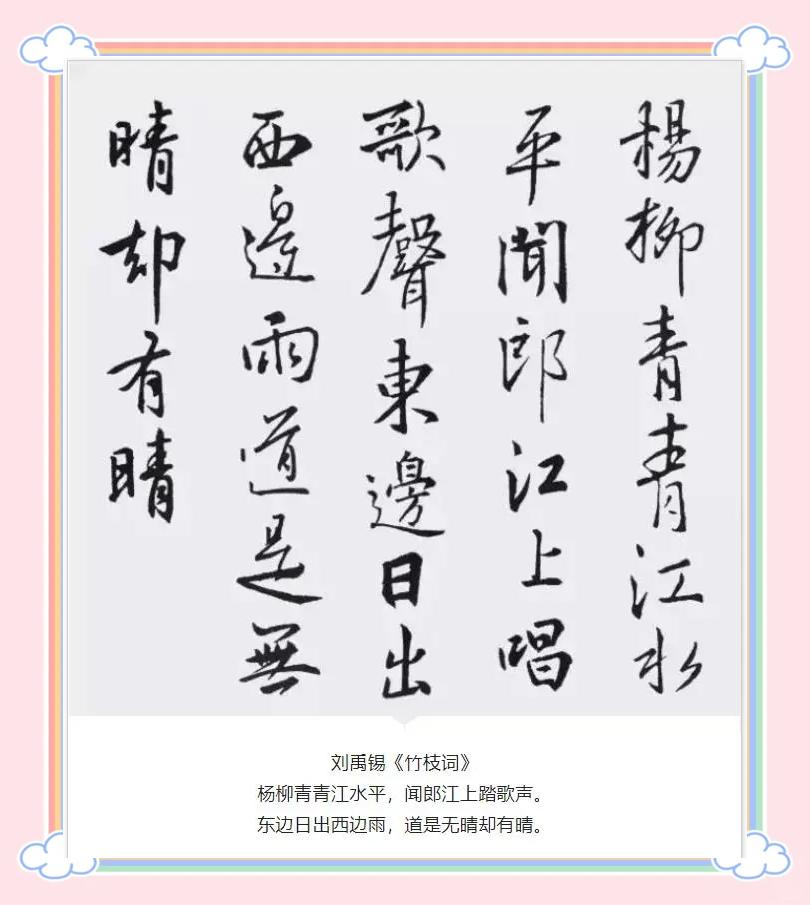 楊柳青青江水
平聞郎江上唱
歌聲東邊日出
西邊雨道是無
晴却有晴
刘禹锡《竹枝词》
杨柳青青江水平，闻郎江上踏歌声。
东边日出西边雨，道是无晴却有晴。